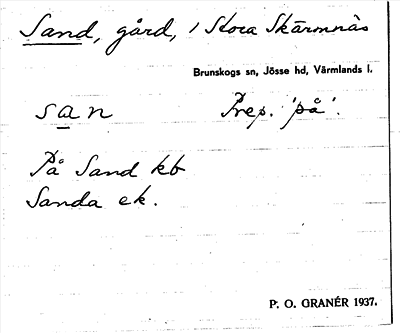 Sand, gård, i Stora Skärmnäs
Brunskogs sn, Jösse hd, Värmlands l.
san Prep. 'på'.
På Sand kb
Sanda ek.
P. O. GRANÉR 1937.